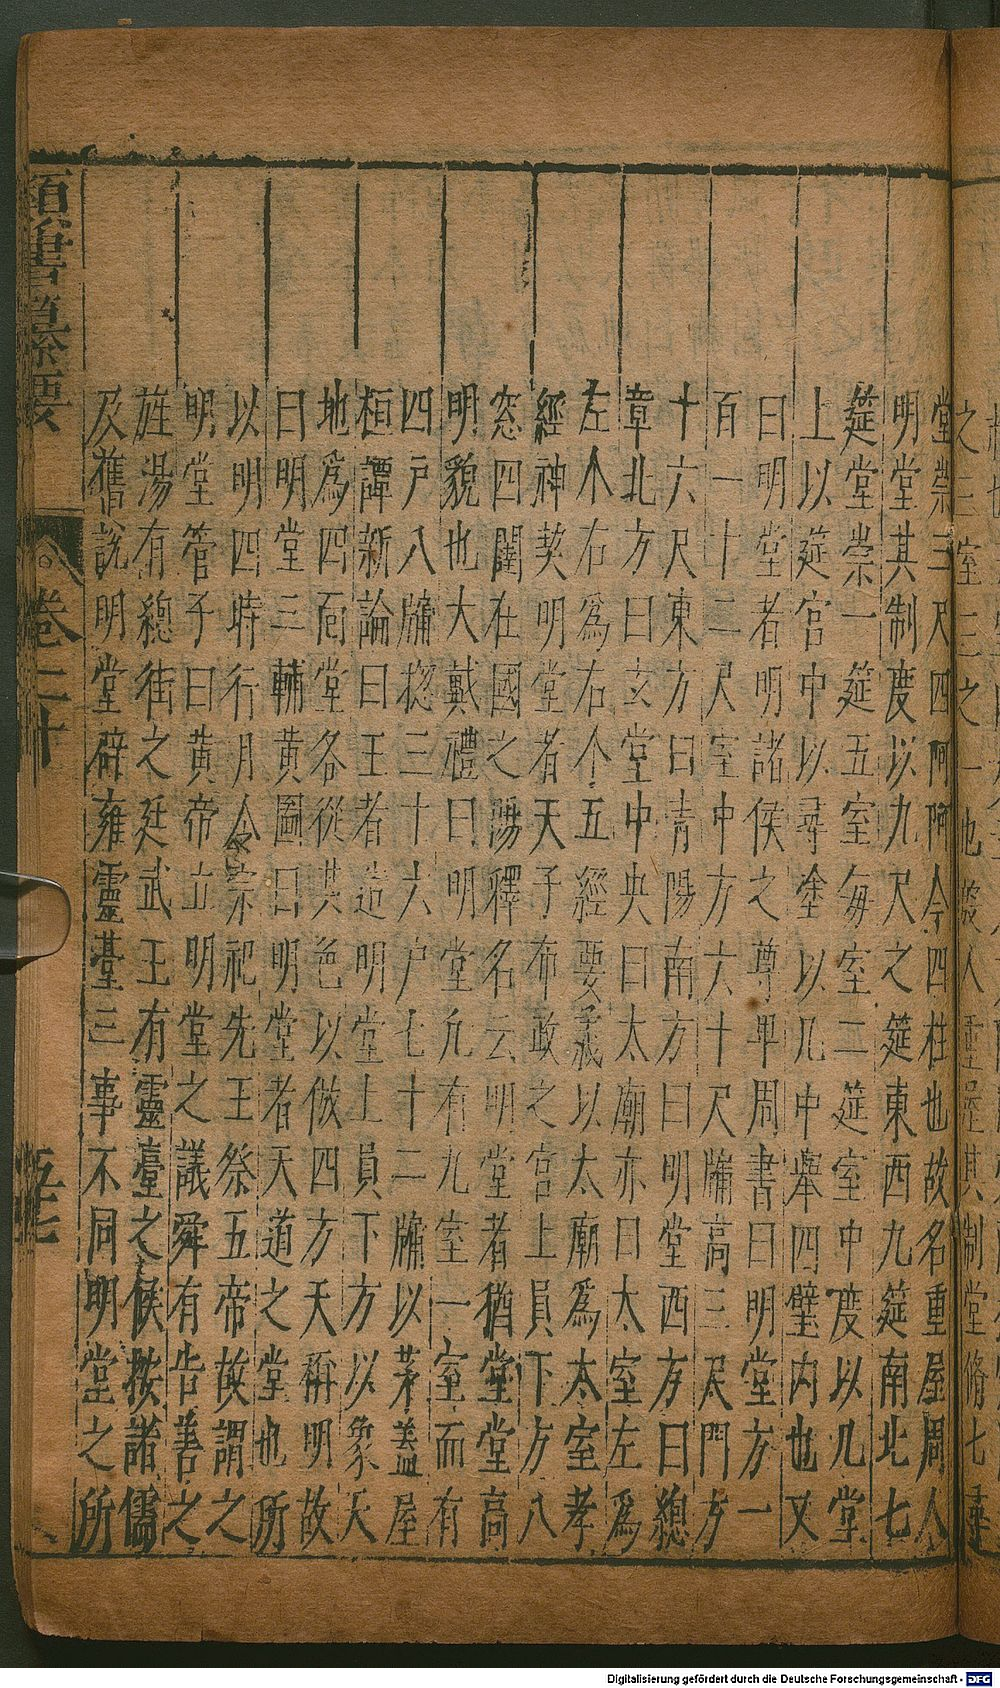 之三室三之一也殷人重屋其制堂脩七尋
堂崇三尺四阿阿今四柱也故名重屋周人
明堂其制度以九尺之筵東西九筵南北七
筵堂崇一筵五室每室二筵室中度以几堂
上以筵宫中以尋塗以几中舉四壁内也又
曰明堂者明諸侯之尊卑周書曰明堂方一
百一十二尺室中方六十尺牖高三尺門方
十六尺東方曰青陽南方曰明堂西方曰總
章北方曰玄堂中央曰太廟亦曰太室左爲
左个右爲右个五經要義以太廟爲太室孝
經神契明堂者天子布政之宫上員下方八
窓四闥在國之陽釋名云明堂者猶堂堂高
明貌也大戴禮曰明堂九有九室一室而有
四户八牖揔三十六户七十二牖以茅盖屋
桓譚新論曰王者造明堂上員下方以象天
地爲四面堂各從其色以倣四方天稱明故
曰明堂三輔黄圖曰明堂者天道之堂也所
以明四時行月令宗祀先王祭五帝故謂之
明堂管子曰黄帝立明堂之議舜有告善之
旌湯有總街之廷武王有靈臺之候按諸儒
及舊說明堂辟雍靈臺三事不同明堂之所
類書纂要
卷二十
五七
Digitalisierung gefördert durch die Deutsche Forschungsgemeinschaft - DFG